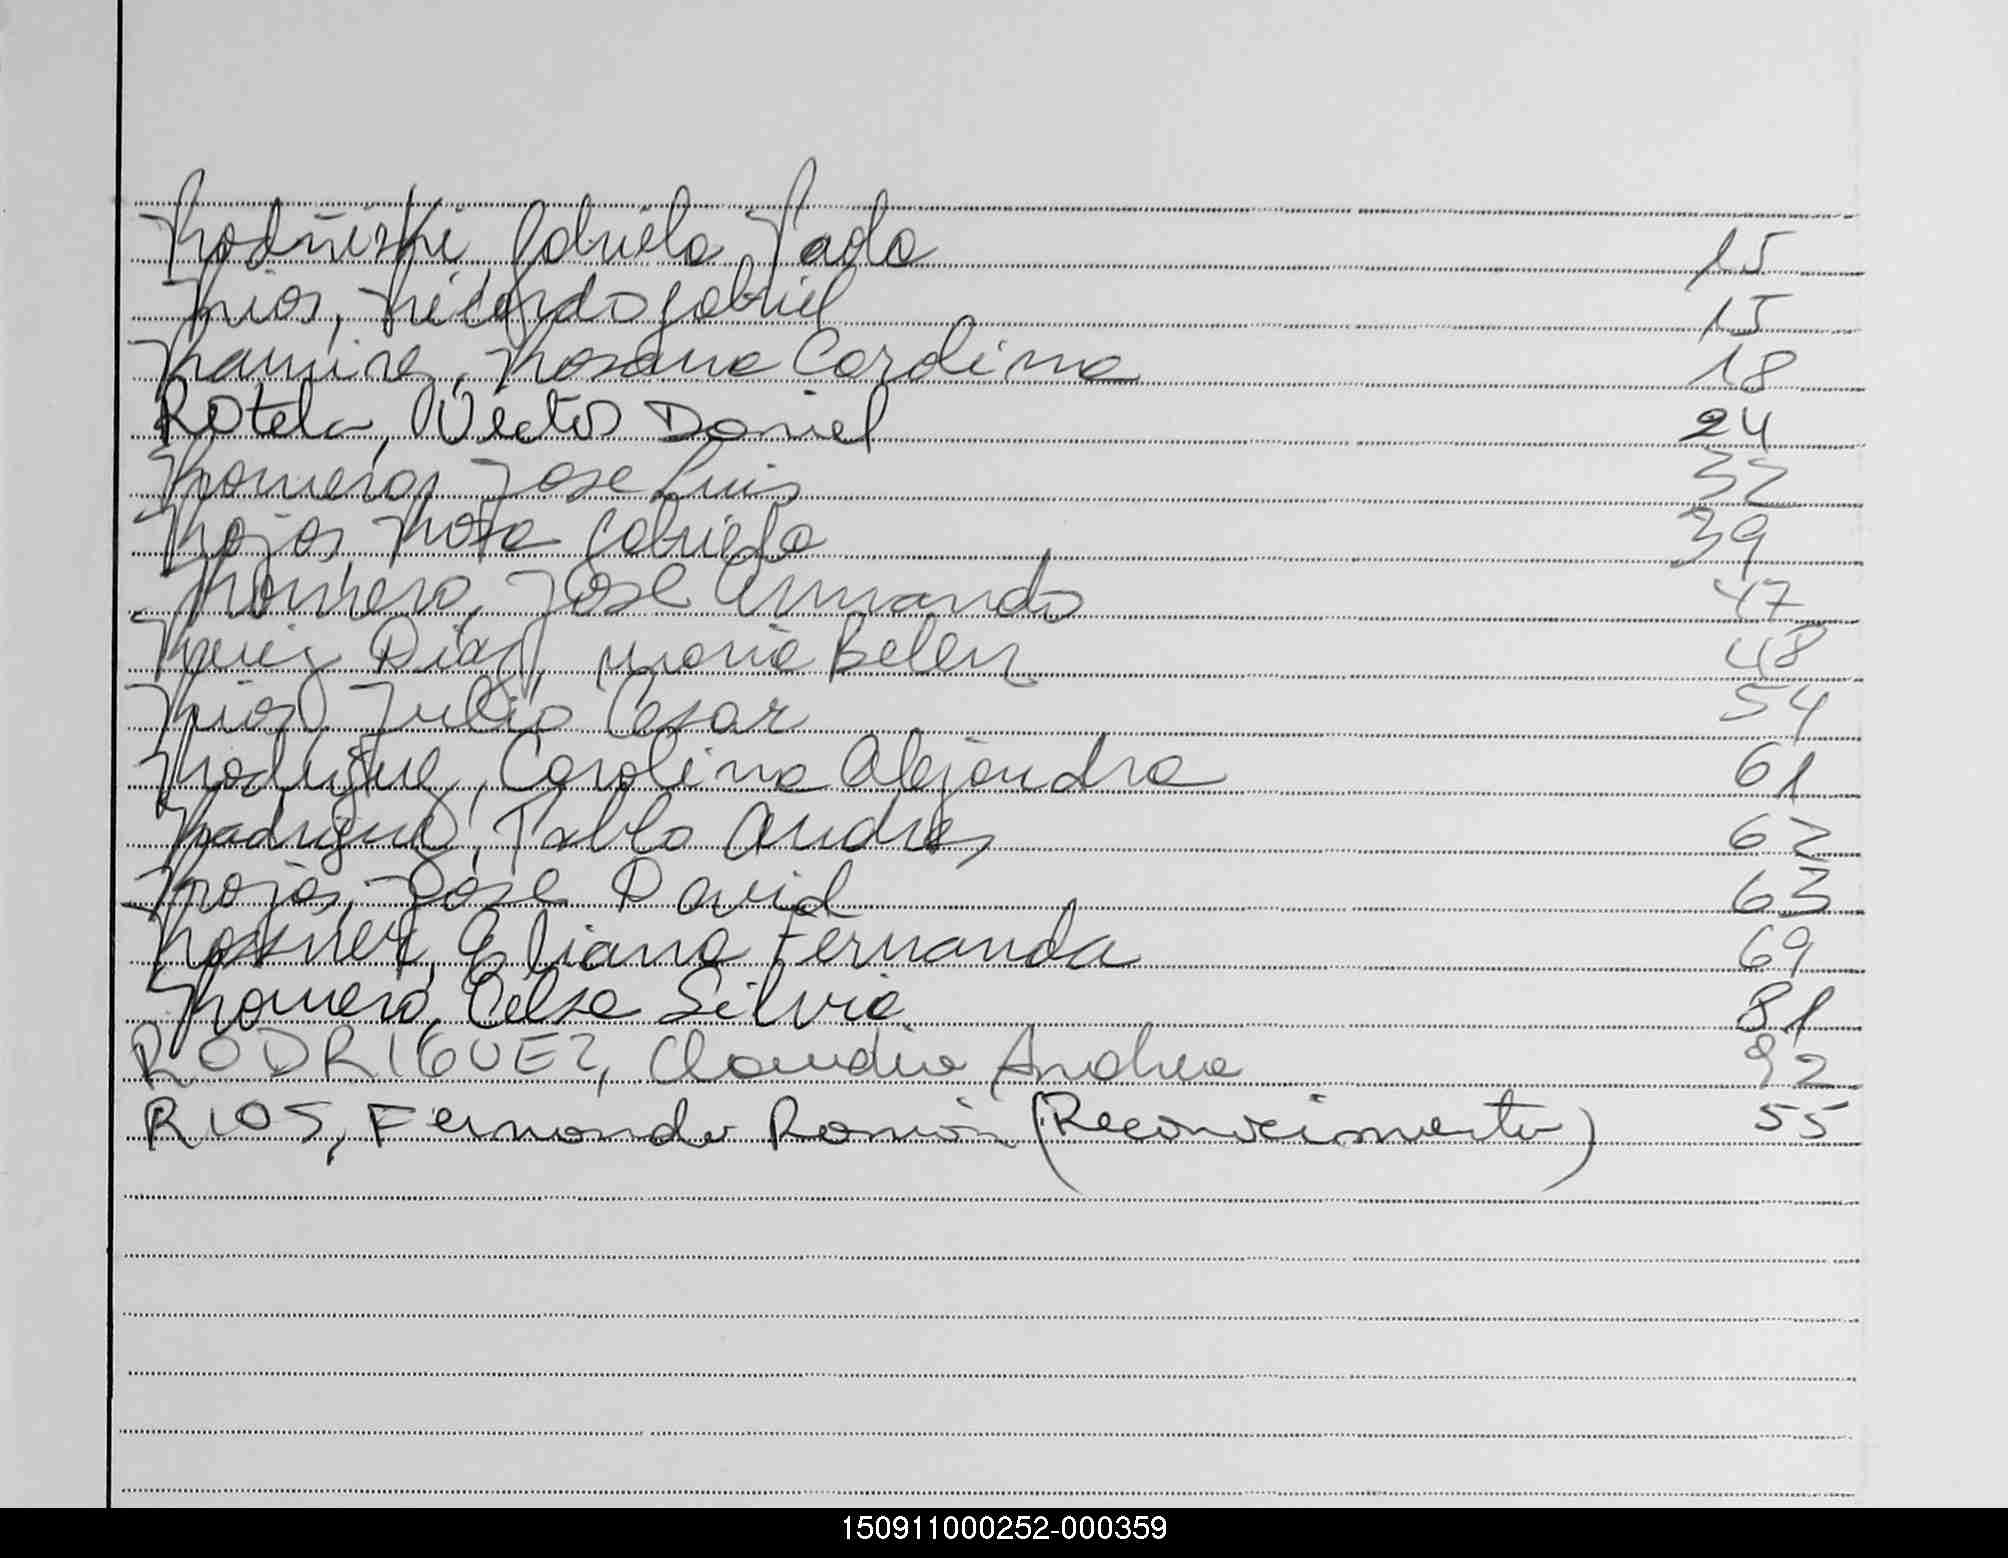 Rodñiski, Gabriela Paola 15
Rios, Ricardo Gabriel 15
Ramirez, Rosana Carolina 18
Rotela, Victor Daniel 24
Romero, Jose Luis 32
Rojas, Rosa Gabriela 39
Romero, Jose Armando 47
Diaz, Maria Belen 48
Rios, Julio Cesar 54
Rodriguez, Carolina Alejandra 61
Rodriguez, Pablo Andres 62
Rojas, Jose David 63
Rossner, Eliana Fernanda 69
Romero, Celsa Silvia 81
RODRIGUEZ, Claudia Andrea 92
RIOS, Fernando Ramón (Reconocimiento) 55
150911000252-000359